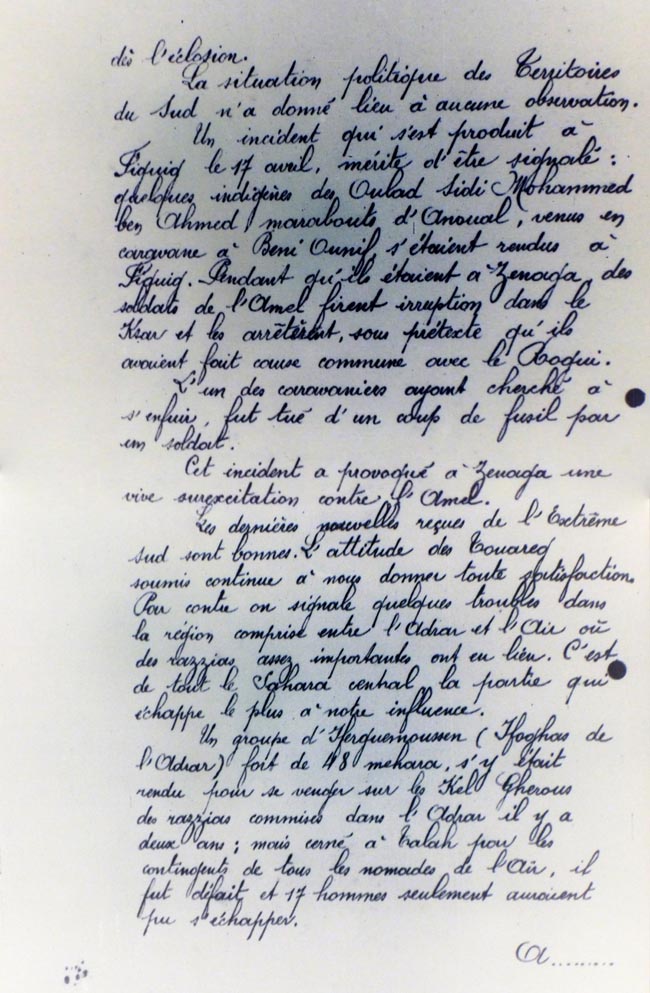 dès l'éclosion.
La situation politique des Territoires
du Sud n'a donné lieu à aucune observation.
Un incident qui s'est produit à
Figuig le 17 avril, mérite d'être signalé :
quelques indigènes des Oulad Sidi Mohammed
ben Ahmed, marabouts d'Anoual, venus en
caravane à Beni Ounif, s'étaient rendus à
Figuig. Pendant qu'ils étaient à Zenaga, des
soldats de l'Amel firent irruption dans le
Ksar et les arrêtèrent, sous prétexte qu'ils
avaient fait cause commune avec le Rogui.
L'un des caravaniers ayant cherché à
s'enfuir, fut tué d'un coup de fusil par
un soldat.
Cet incident a provoqué à Zenaga une
vive surexcitation contre l'Amel.
Les dernières nouvelles reçues de l'Extrême
Sud sont bonnes. L'attitude des Touareg
soumis continue à nous donner toute satisfaction.
Par contre on signale quelques troubles dans
la région comprise entre l'Adrar et l'Air où
des razzias assez importantes ont eu lieu. C'est
de tout le Sahara central la partie qui
échappe le plus à notre influence.
Un groupe d'Iferguemoussen (Ifoghas de
l'Adrar) fort de 48 mehara, s'y était
rendu pour se venger sur les Kel Gherous
des razzias commises dans l'Adrar il y a
deux ans ; mais cerné à Talah par les
contingents de tous les nomades de l'Air, il
fut défait et 17 hommes seulement auraient
pu s'échapper.
A.........